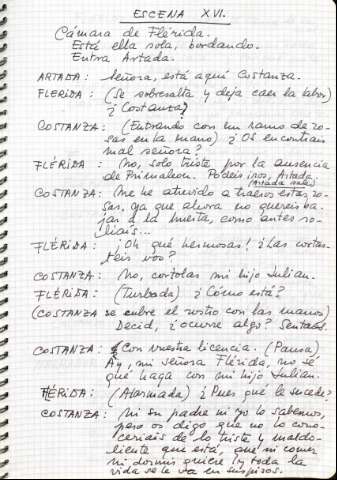 ESCENA XVI.
Cámara de Flérida.
Está ella sola, bordando.
Entra Artada.
ARTADA: Señora, está aquí Costanza.
FLERIDA: (Se sobresalta y deja caer la labor)
¿Costanza?
COSTANZA: (Entrando con un ramo de ro-
sas en la mano) ¿Os encontráis
mal señora?
FLÉRIDA: (No, solo triste por la ausencia
de Primaleon. Podéis iros, Artada.
(Artada sale)
COSTANZA: (Me he atrevido a traeros estas ro-
sas, ya que ahora no queréis ba-
jar a la huerta, como antes so-
líais...
FLÉRIDA: ¡Oh qué hermosas! ¿Las cortas-
teis vos?
COSTANZA: No, cortolas mi hijo Julian.
FLÉRIDA: (Turbada) ¿Cómo está?
(COSTANZA se cubre el rostro con las manos)
Decid, ¿ocurre algo? Sentaos.
COSTANZA: Con vuestra licencia. (Pausa)
Ay, mi señora Flérida, no sé
qué haga con mi hijo Julian.
FLÉRIDA: (Alarmada) ¿Pues qué le sucede?
COSTANZA: Ni su padre ni yo lo sabemos,
pero os digo que no lo cono-
ceríais de lo triste y maldo-
liente que está, que ni comer
ni dormir quiere y toda la
vida se le va en suspiros.